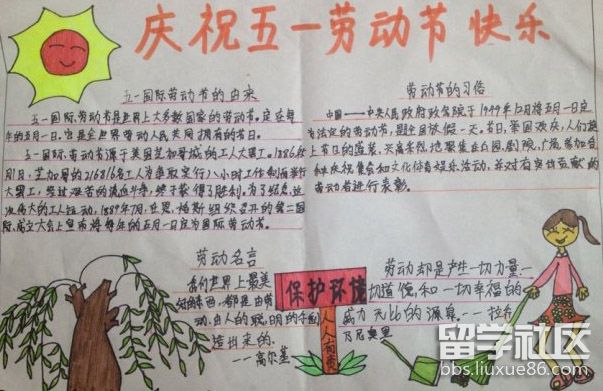 庆祝五一劳动节快乐
五一国际劳动节的由来
五一国际劳动节是世界上大多数国家的劳动节。定在每
年的五月一日。它是全世界劳动人民共同拥有的节日。
五一国际劳动节源于美国芝加哥城的工人大罢工。1886年5
月1日，芝加哥的216816名工人为争取实行八小时工作制而举行
大罢工，经过艰苦的流血斗争，终于获得了胜利。为了纪念这
次伟大的工人运动，1889年7月，在恩
格斯组织召开的第二国
际成立大会上宣布将每年的五月一日定为国际劳动节。
劳动节的习俗
中国——中央人民政府政务院于1949年12月将五月一日定
为法定的劳动节，是全国放假一天。节日，举国欢庆，人们换
上节日的盛装，兴高采烈地聚集在公园，剧院，广场，参加各
种庆祝集会和文化体育娱乐活动，并对有突出贡献的
劳动者进行表彰。
劳动名言
我们世界上最美
好的东西，都是由劳
动、由人的聪明的手创
造出来的。
——高尔基
保护环境
人人有责
劳动却是产生一切力量、一
切道德和一切幸福的
威力无比的源泉。——拉·乔
瓦尼奥里
留学社区
bbs.liuxue86.com